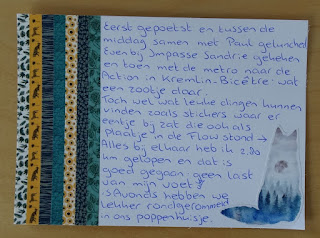 Eerst gepoetst en tussen de
middag samen met Paul geluncht
Even bij Impasse Sandrie gekeken
en toen met de metro naar de
Action in Kremlin-Bicêtre: wat
een zootje daar.
Toch wel wat leuke dingen kunnen
vinden zoals stickers waar er
eentje bij zat die ook als
plaatje in de Flow stond →
Alles bij elkaar heb ik 2,80
km gelopen en dat is
goed gegaan: geen last
van mijn voet!
's Avonds hebben we
lekker rondgerommeld
in ons poppenhuisje.